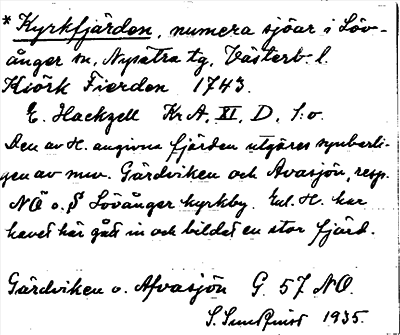 * Kyrkfjärden, numera sjöar i Löv-
ånger sn, Nysätra tg, Västerb. l.
Kiörk Fierden 1743.
E. Hackzell Kr A, XI, D, 1:o.
Den av H. angivna fjärden utgöres synbarli-
gen av nuv. Gärdviken och Avasjön, resp.
NÖ o. S Lövånger kyrkby. Enl. H. har
havet här gått in och bildat en stor fjärd.
Gärdviken o. Afvasjön G. 57 NO.
S. Sundqvist 1935.